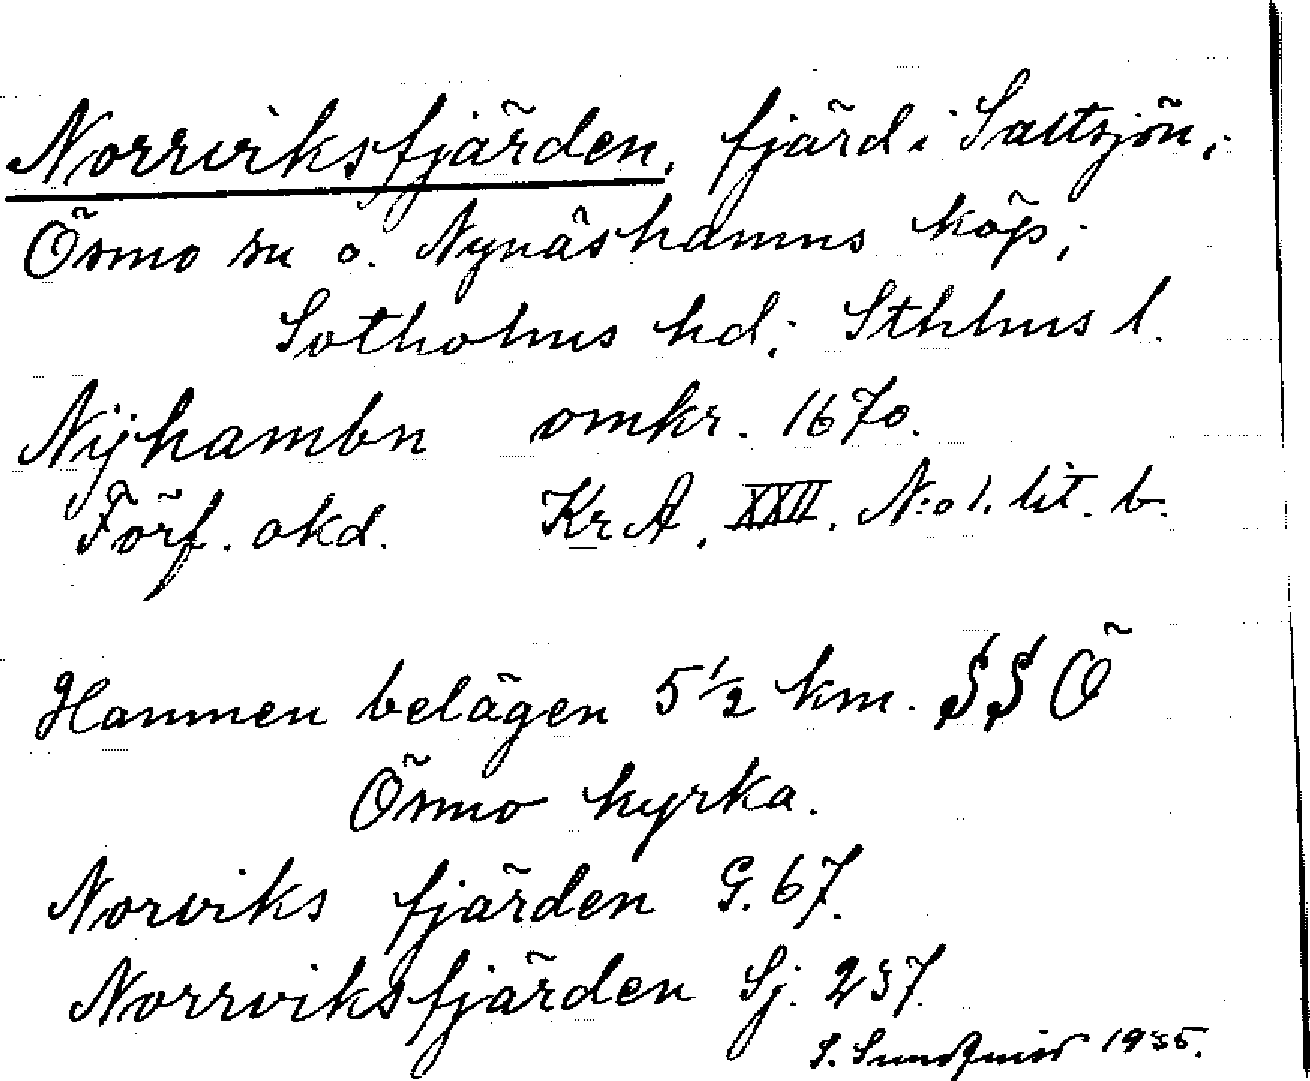 Norrviksfjärden, fjärd i Saltsjön,
Ösmo sn o. Nynäshamns köp,
Sotholms hd; Sthlms l.
Nijhambn omkr. 1670.
Förf. okd. Kr A. XXII. N:o 1. lit. b.
Hamnen belägen 5 1/2 km. SSÖ
Ösmo kyrka.
Norviks fjärden G. 67.
Norrviksfjärden Sj. 237.
S. 1935.